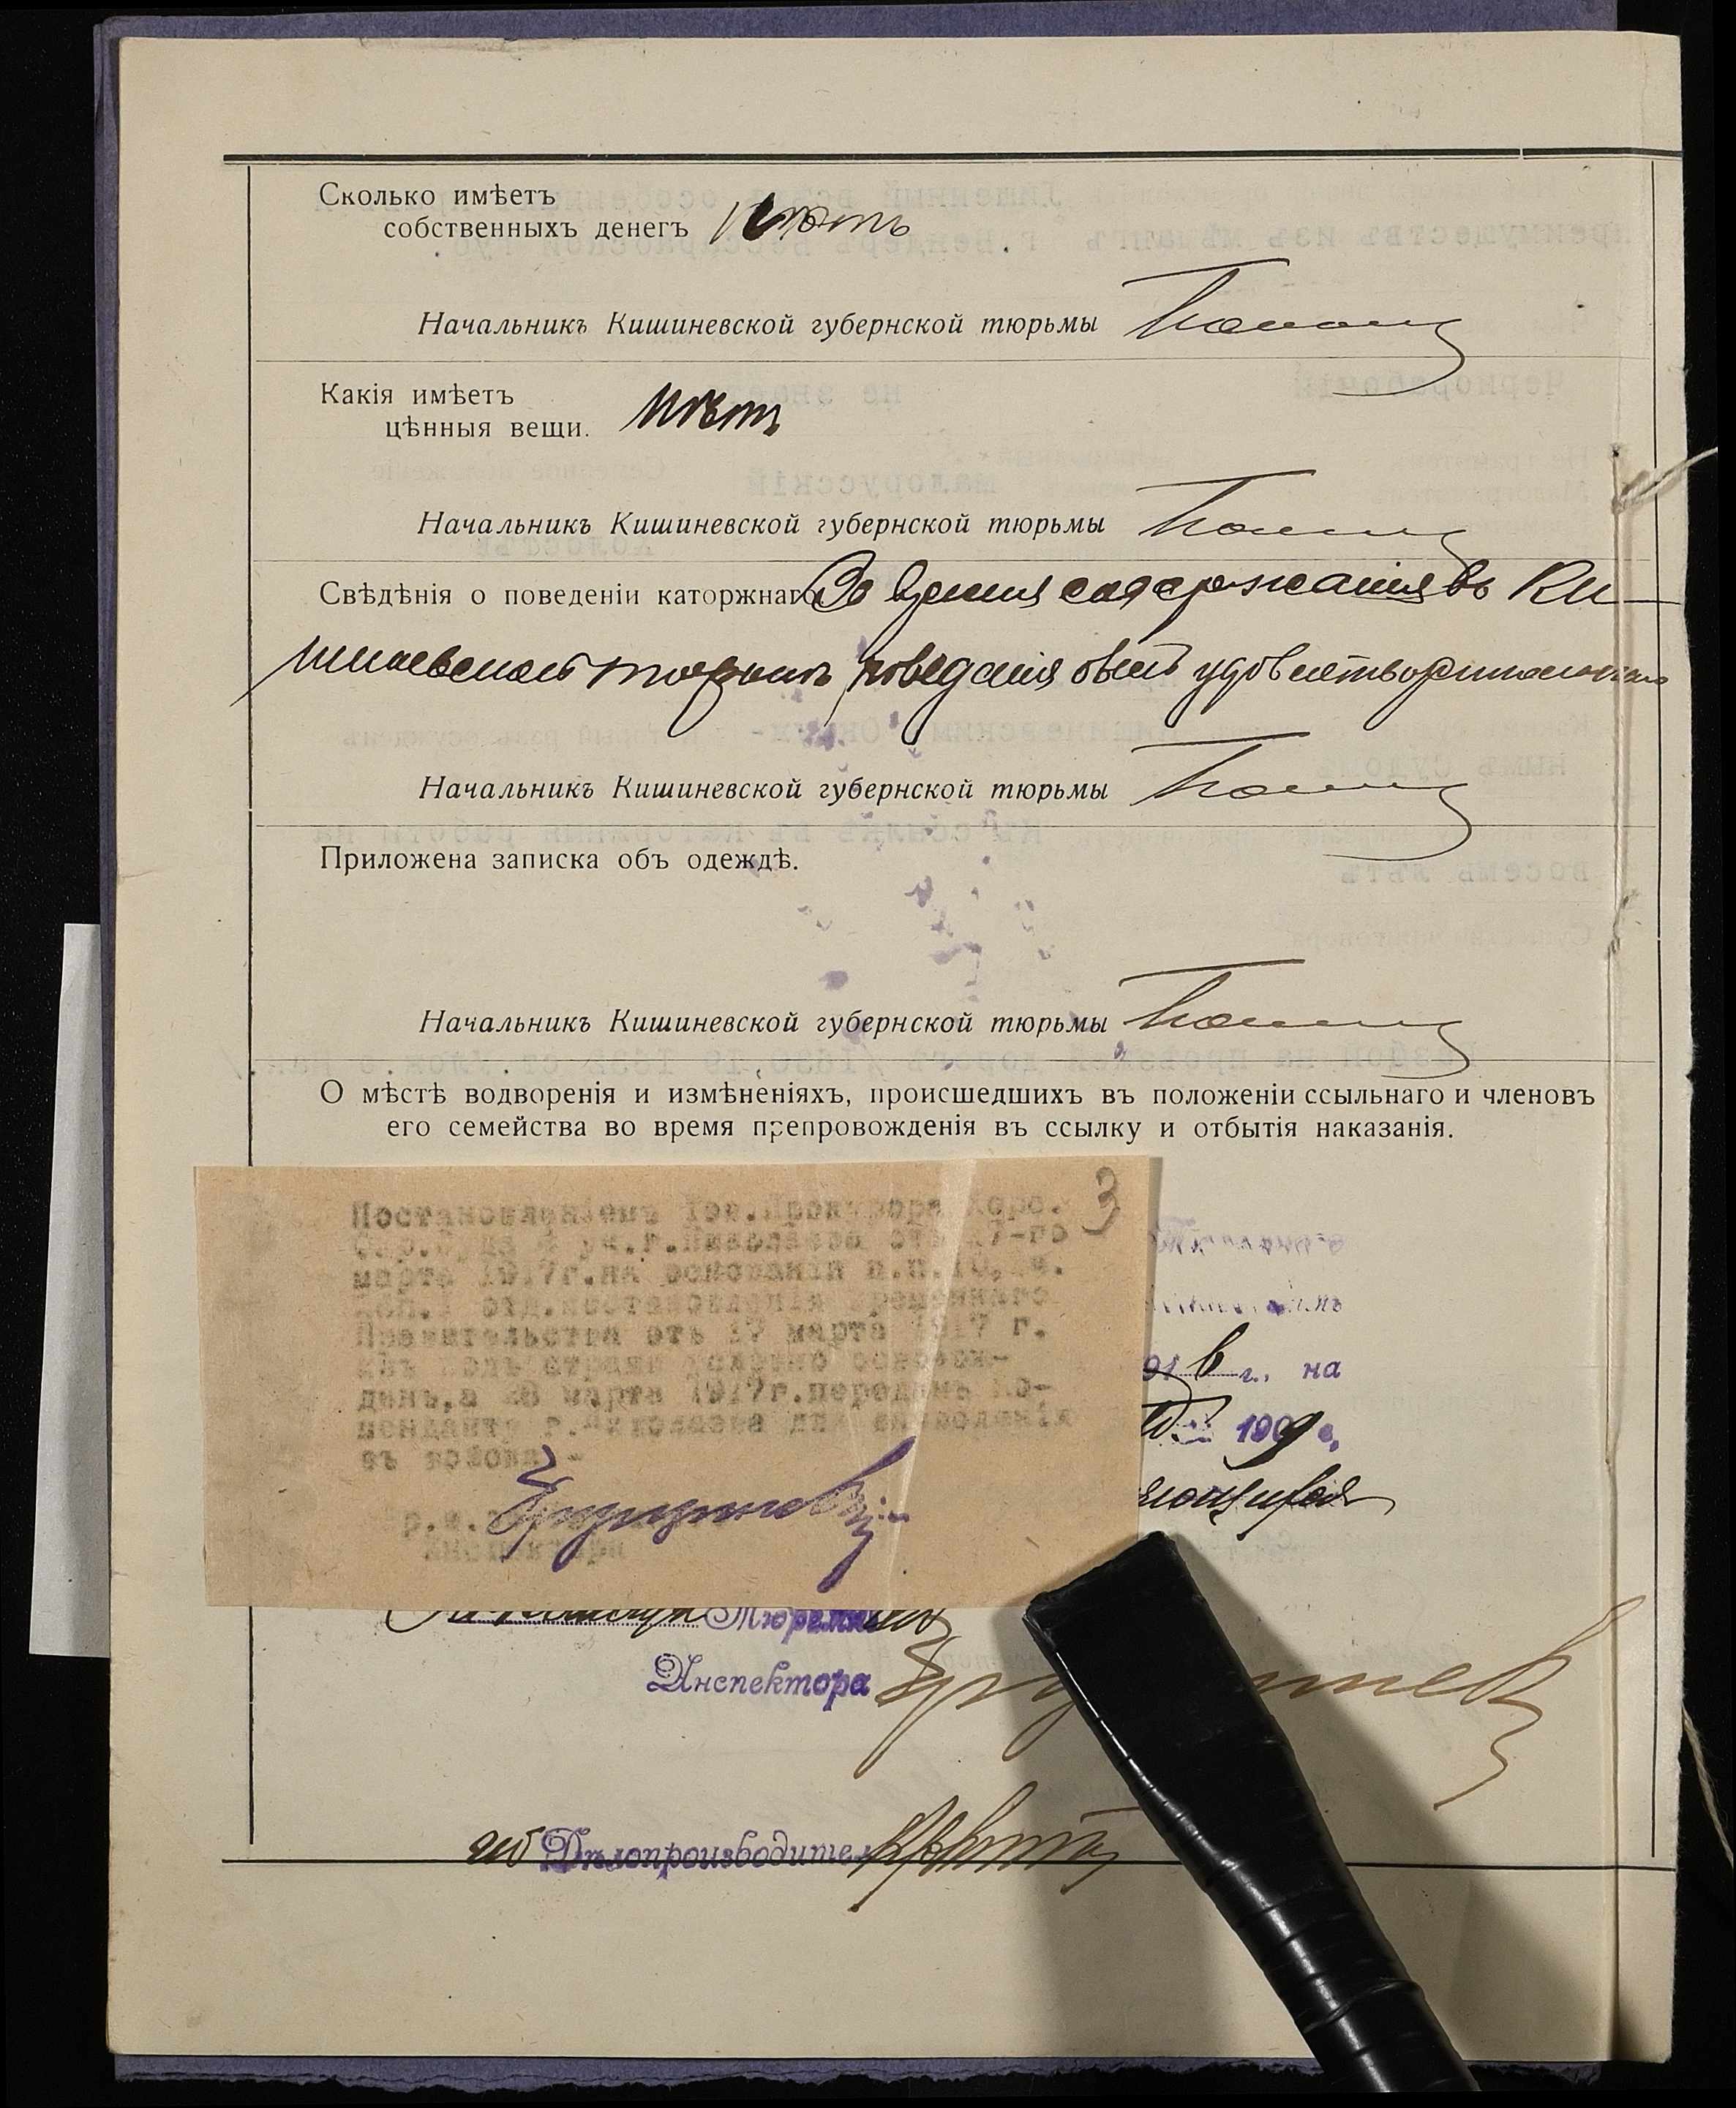 Сколько имѣетъ
собственныхъ денегъ нѣтъ
Начальникъ Кишиневской губернской тюрьмы
Какія имѣетъ
цѣнныя вещи. нѣтъ
Начальникъ Кишиневской губернской тюрьмы
Свѣдѣнія о поведеніи каторжнаго Во время содержанія въ Ки-
шиневской тюрьмѣ поведенія былъ удовлетворительнаго
Начальникъ Кишиневской губернской тюрьмы
Приложена записка объ одеждѣ.
Начальникъ Кишиневской губернской тюрьмы
О мѣстѣ водворенія и измѣненіяхъ, происшедшихъ въ положеніи ссыльнаго и членовъ
его семейства во время препровожденія въ ссылку и отбытія наказанія.
3
Постановленіемъ Тов.Прокурора Херс.
Окр.Суда уч.г.Николаева отъ 27-го
марта 1917г.на основаніи п.п.
отд.постановленія Временнаго
Правительства отъ 17 марта 1917 г.
изъ подъ стражи условно освобож-
денъ,а 28 марта 1917г.переданъ Ко-
менданту г.Николаева для
въ войска.-
Инспектора
г., на
1909 г.
Тюремн
Инспектора
Дѣлопроизводител